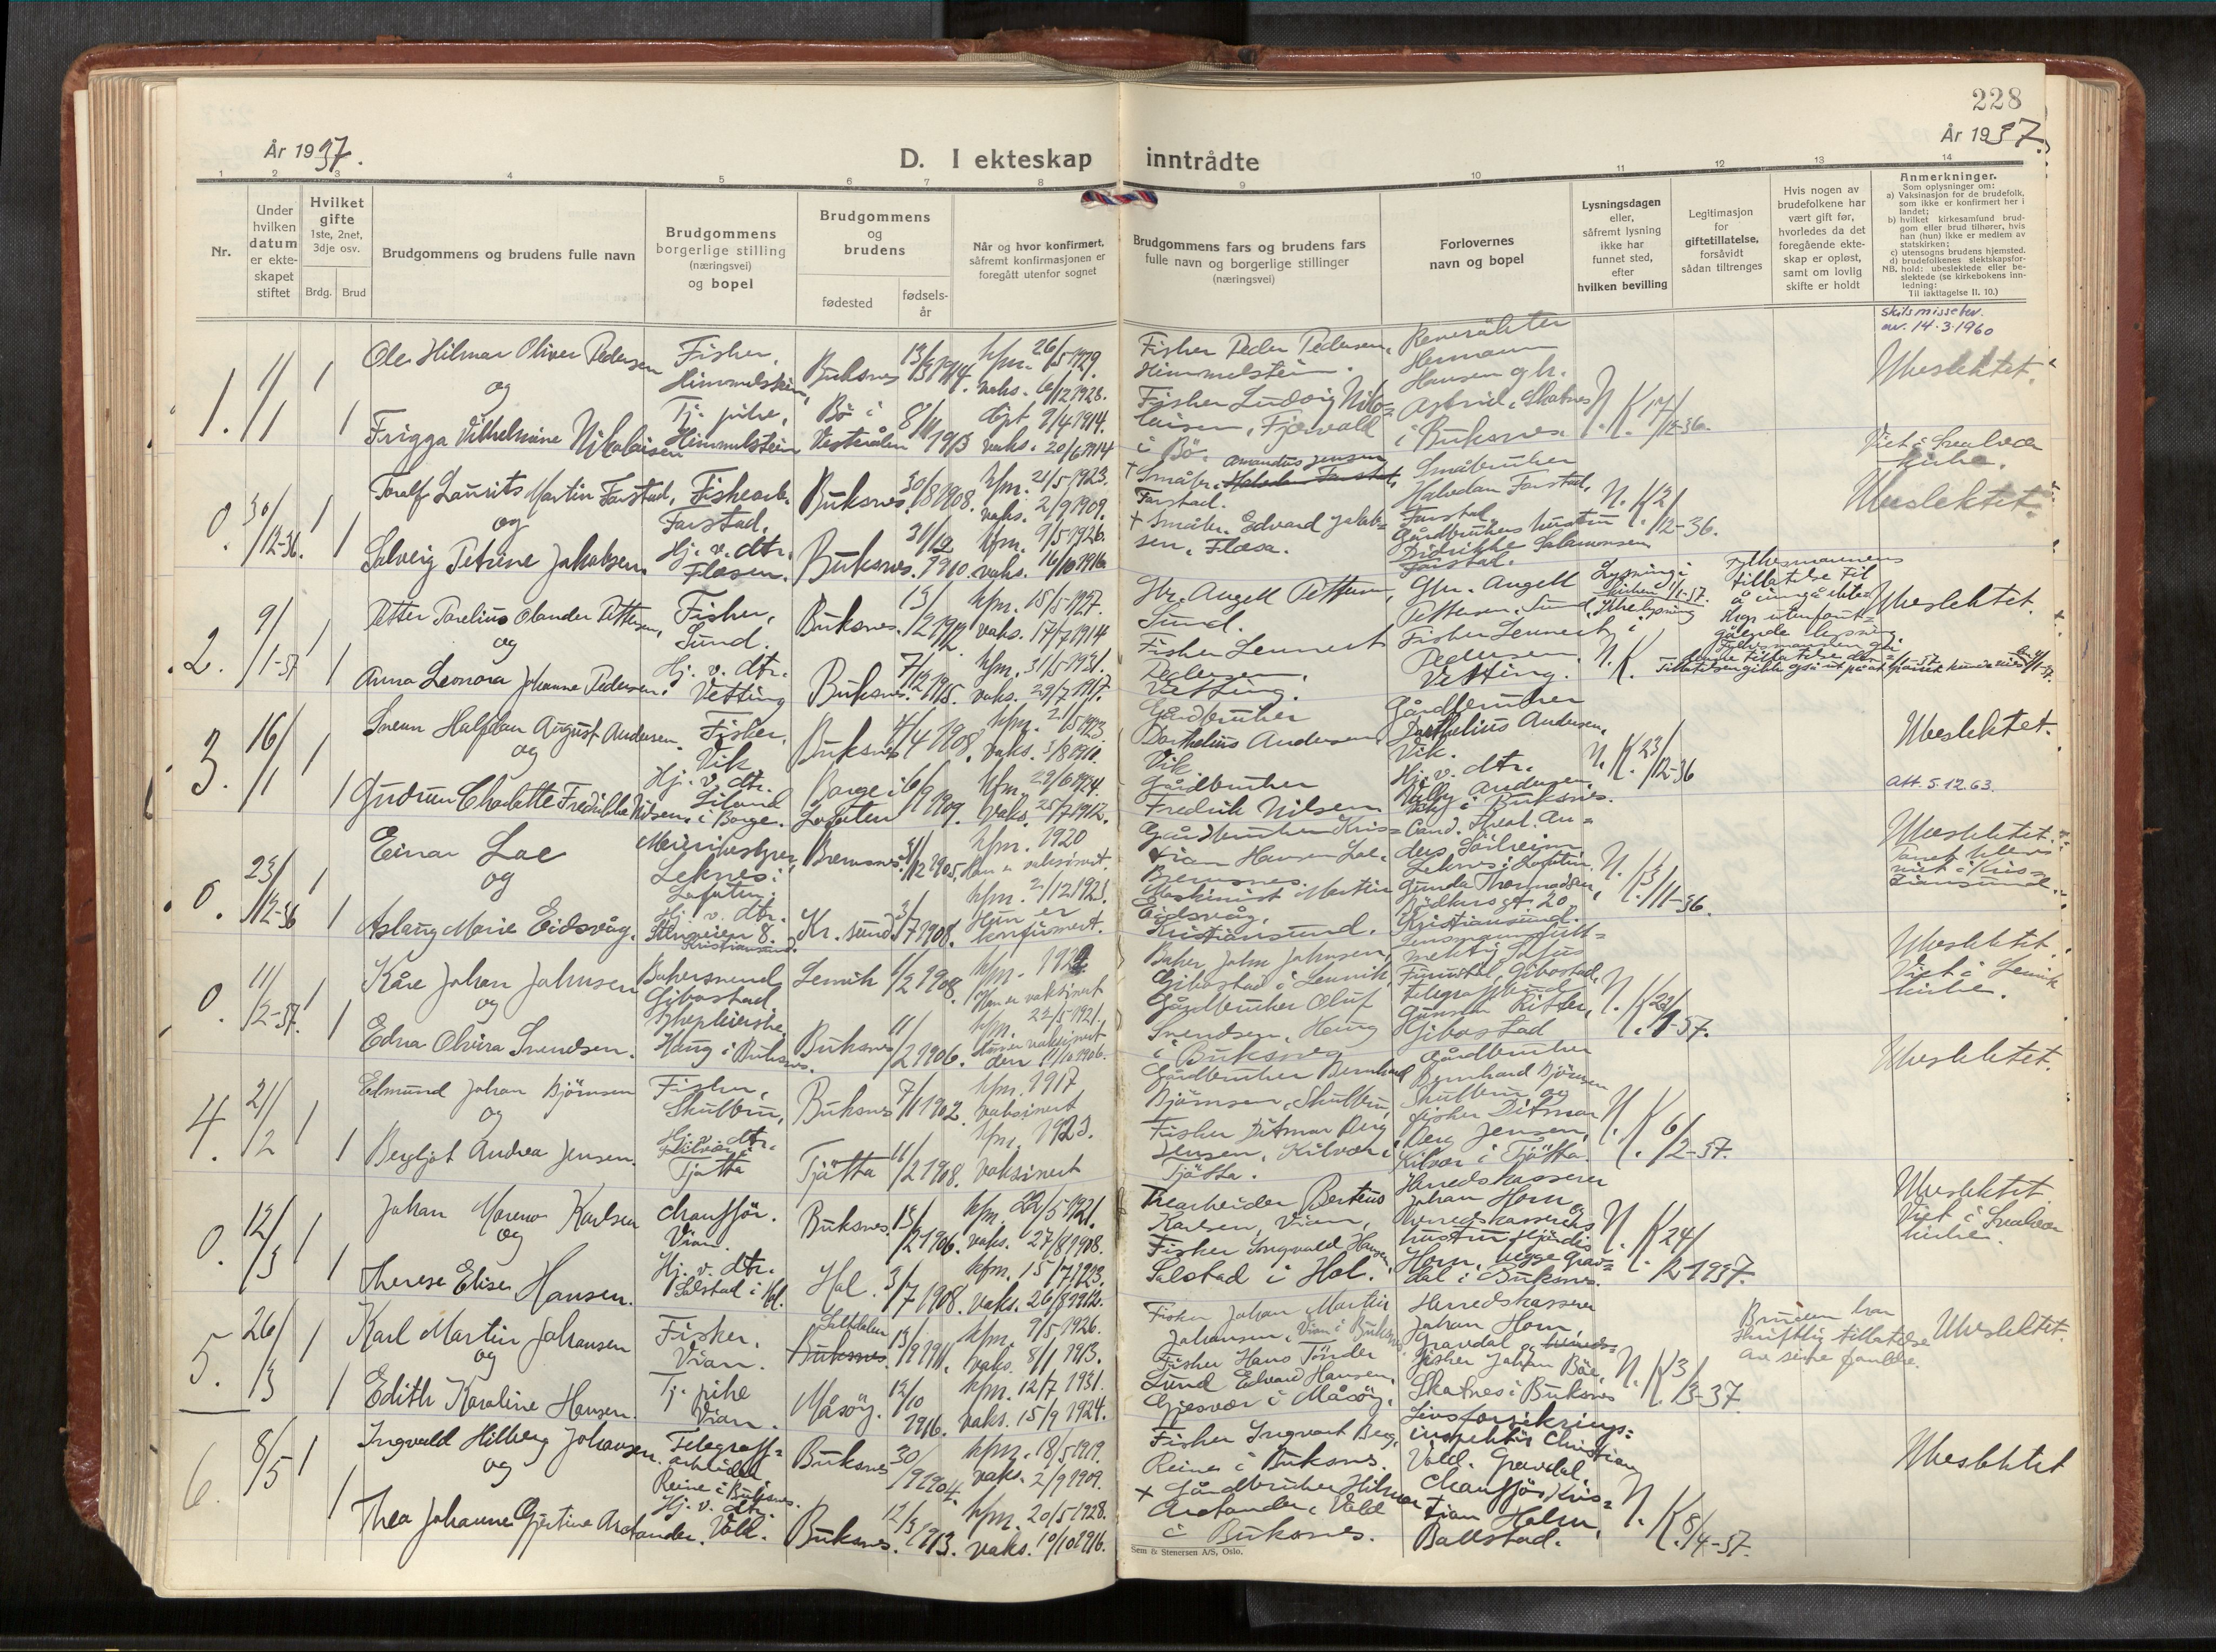 228
År 1937.
År 1937.
D. I ekteskap inntrådte
1 2 3 4 5 6 7 8 9 10 11 12 13 14
Nr.
Under
hvilken
datum
er ekte-
skapet
stiftet
Hvilket
gifte
1ste, 2net,
3dje osv.
Brdg. Brud
Brudgommens og brudens fulle navn
Brudgommens
borgerlige stilling
(næringsvei)
og bopel
Brudgommens
og
brudens
fødested
fødsels-
år
Når og hvor konfirmert,
såfremt konfirmasjonen er
foregått utenfor sognet
Brudgommens fars og brudens fars
fulle navn og borgerlige stillinger
(næringsvei)
Forlovernes
navn og bopel
Lysningsdagen
eller,
såfremt lysning
ikke har
funnet sted,
efter
hvilken bevilling
Legitimasjon
for
giftetillatelse,
forsåvidt
sådan tiltrenges
Hvis nogen av
brudefolkene har
vært gift før,
hvorledes da det
foregående ekte-
skap er opløst,
samt om lovlig
skifte er holdt
Anmerkninger.
Som oplysninger om:
a) Vaksinasjon for de brudefolk,
som ikke er konfirmert her i
landet;
b) hvilket kirkesamfund brud-
gom eller brud tilhører, hvis
han (hun) ikke er medlem av
statskirken;
c) utensogns brudens hjemsted.
d) brudefolkenes slektskapsfor-
NB. hold: ubeslektede eller be-
slektede (se kirkebokens inn-
ledning:
Til iakttagelse II. 10.)
1. 1/1 1 1
Ole Hilmar Oliver Pedersen
og
Frigga Vilhelmine Nikolaisen
Fisker,
Himmelstein,
Tj. pike,
Himmelstein
Buksnes
Bø i
Vesterålen
kfm. 26/5 1929.
vaks. 6/12 1928.
døpt 2/4 1914.
vaks. 20/6 1914
Fisker Peder Pedersen,
Himmelstein.
Fisker Ludvig Niko=
laisen, Fjærvoll
i Bø.
Hermann
Hansen og fr.
Astrid, Skotnes
i Buksnes
N. K. 17/12-36.
av. 14.3.1960
Ubeslektet.
0. 30/12-36. 1 1
Toralf Laurits Martin Farstad,
og
Solveig Petrine Jakobsen
Fiskearb.
Farstad.
Hj. v. dtr.
Flæsen.
Buksnes. 30/8 1908.
Buksnes. 1910.
kfm. 21/5 1923.
vaks. 2/9 1909.
kfm. 9/5 1926.
vaks. 16/10 1916
† Småbr. Halvdan Farstad, Amandus Jensen
Farstad.
† Småbr. Edvard Jakob=
sen, Flæsa.
Småbruker
Halvdan Farstad,
Farstad
Gårdbrukers hustru
Didrikke Salamonsen
Farstad.
N. K. 2/12-36.
Viet i Svolvær
kirke.
Ubeslektet.
2. 9/1-37 1 1
Petter Parelius Olander Pettersen,
og
Anna Leonora Johanne Pedersen.
Fisker,
Sund.
Hj. v. dtr.
Vetting
Buksnes. 13/2 1912
Buksnes. 7/12 1915.
kfm. 15/5 1927.
vaks. 17/7 1914
kfm. 31/5 1931.
vaks. 29/7 1917.
Gbr. Angell Pettersen,
Sund.
Fisker Lennert
Pedersen,
Vetting.
Gbr. Angell
Pettersen, Sund.
Fisker Lennert
Pedersen,
Vetting.
Lysning i
kirken 1/1-37.
Ikke lysning
i
N. K.
Fylkesmannens
tillatelse til
å inngå ekte=
skap uten forut=
gående lysning.
Ubeslektet.
3. 16/1 1 1
Svenn Halfdan August Andersen.
og
Gudrun Charlotte Fredrikke Nilsen
Fisker,
Vik
Hj. v. dtr.
Liland
i Borge.
Buksnes 4/4 1908.
Borge i
Lofoten 6/9 1909.
kfm. 21/5 1923.
vaks. 3/8 1910.
kfm. 29/6 1924.
vaks. 25/7 1912.
Gårdbruker
Dorthelius Andersen
Vik
Gårdbruker
Fredrik Nilsen
Gårdbruker
Dorthelius Andersen,
Vik.
Hj. v. dtr.
Willy Andersen
Vik i Buksnes.
N. K. 23/12-36
Ubeslektet.
Att. 5.12.63.
0. 23/12-36 1 1
Einar Loe
og
Aslaug Marie Eidsvåg.
Meieribestyrer,
Leknes i
Lofoten.
Hj. v. dtr.
Kristiansund.
Bremsnes. 31/12 1905.
Kr. sund 3/7 1908.
kfm. 1920
Han er vaksinert.
kfm. 2/12 1923.
Hun er
konfirmert.
Gårdbruker Kris=
tian Hansen Loe,
Bremsnes.
Maskinist Martin
Eidsvåg,
Kristiansund.
Cand. theol. An=
ders Solheim
Leknes i Lofoten.
Gunda Thormodsen,
Kristiansund.
N. K. 3/11-36.
Ubeslektet.
viet i Kris=
tiansund.
0. 11/2-37. 1 1
Kåre Johan Johnsen
og
Edna Olvira Svendsen.
Bakersvend
Gibostad
Sykepleierske,
Haug i Buksnes.
Lenvik 11/2 1908.
Buksnes 11/2 1906.
kfm. 1922
Han er vaksinert
kfm. 22/5 1921.
Hun er vaksinert
den 11/10 1906.
Baker John Johnsen,
Gibostad i Lenvik,
Gårdbruker Oluf
Svendsen, Haug
i Buksnes
Lensmannsfull=
mektig
Finnstad, Gibostad,
Gunstein Ritter,
Gibostad
N. K. 23/1-37.
Ubeslektet.
Viet i Lenvik
kirke.
4. 21/2 1 1
Edmund Johan Björnsen
og
Bergljot Andrea Jensen.
Fisker,
Skulbru,
Hj. v. dtr.
Kilvær i
Tjøtta
Buksnes 7/11 1902.
Tjøtta 11/2 1908.
kfm. 1917
vaksinert
kfm. 1923.
vaksinert
Gårdbruker Bernhard
Björnsen, Skulbru,
Fisker Ditmar Berg
Jensen, Kilvær i
Tjøtta.
Gårdbruker
Bernhard Björnsen
Skulbru, og
fisker Ditmar
Berg Jensen,
Kilvær i Tjøtta.
N. K. 6/2-37.
Ubeslektet.
0. 12/3 1 1
Johan Moreno Karlsen
og
Therese Elise Hansen.
Chauffør.
Vian.
Hj. v. dtr.
Solstad i Hol.
Buksnes. 13/2 1906.
Hol. 3/7 1908.
kfm. 22/5 1921.
vaks. 27/8 1908.
kfm. 15/7 1923.
vaks. 26/8 1912.
Trearbeider Berteus
Karlsen, Vian,
Fisker Ingvald Hansen
Solstad i Hol.
Herredskasserer
Johan Horn og
herredskasserers
hustru Hjørdis
Horn, begge Grav=
dal i Buksnes.
N. K. 24/2-1937.
Ubeslektet.
Viet i Svolvær
kirke.
5. 26/3 1 1
Karl Martin Johansen
og
Edith Karoline Hansen.
Fisker.
Vian.
Tj. pike
Vian.
Saltdalen
Buksnes. 13/9 1911.
Måsøy. 12/10 1916.
kfm. 9/5 1926.
vaks. 8/1 1913.
kfm. 12/7 1931.
vaks. 15/9 1924.
Fisker Johan Martin
Johansen, Vian i Buksnes.
Fisker Hans Tönder
Lund Edvard Hansen,
Gjesvær i Måsøy.
Herredskasserer
Johan Horn
Gravdal og
fisker Johan Böe,
Skotnes i Buksnes
N. K. 3/3-37.
Bruden har
skriftlig tillatelse
av sine foreldre.
Ubeslektet.
6. 8/5 1 1
Ingvald Hilberg Johansen.
og
Thea Johanne Gjertine Arctander.
Telegraf=
arbeider.
Reine i Buksnes.
Hj. v. dtr.
Vold.
Buksnes 30/9 1904.
Buksnes. 12/3 1913.
kfm. 18/5 1919.
vaks. 2/9 1909.
kfm. 20/5 1928.
vaks. 10/10 1916.
Fisker Ingvart Berg,
Reine i Buksnes.
† Gårdbruker Hilmar
Arctander, Vold
i Buksnes.
Livsforsikrings=
inspektør Christian
Vold, Gravdal.
Chauffør Kris=
tian Holm,
Ballstad.
N. K. 8/4-37.
Ubeslektet
Sem & Stenersen A/S, Oslo.